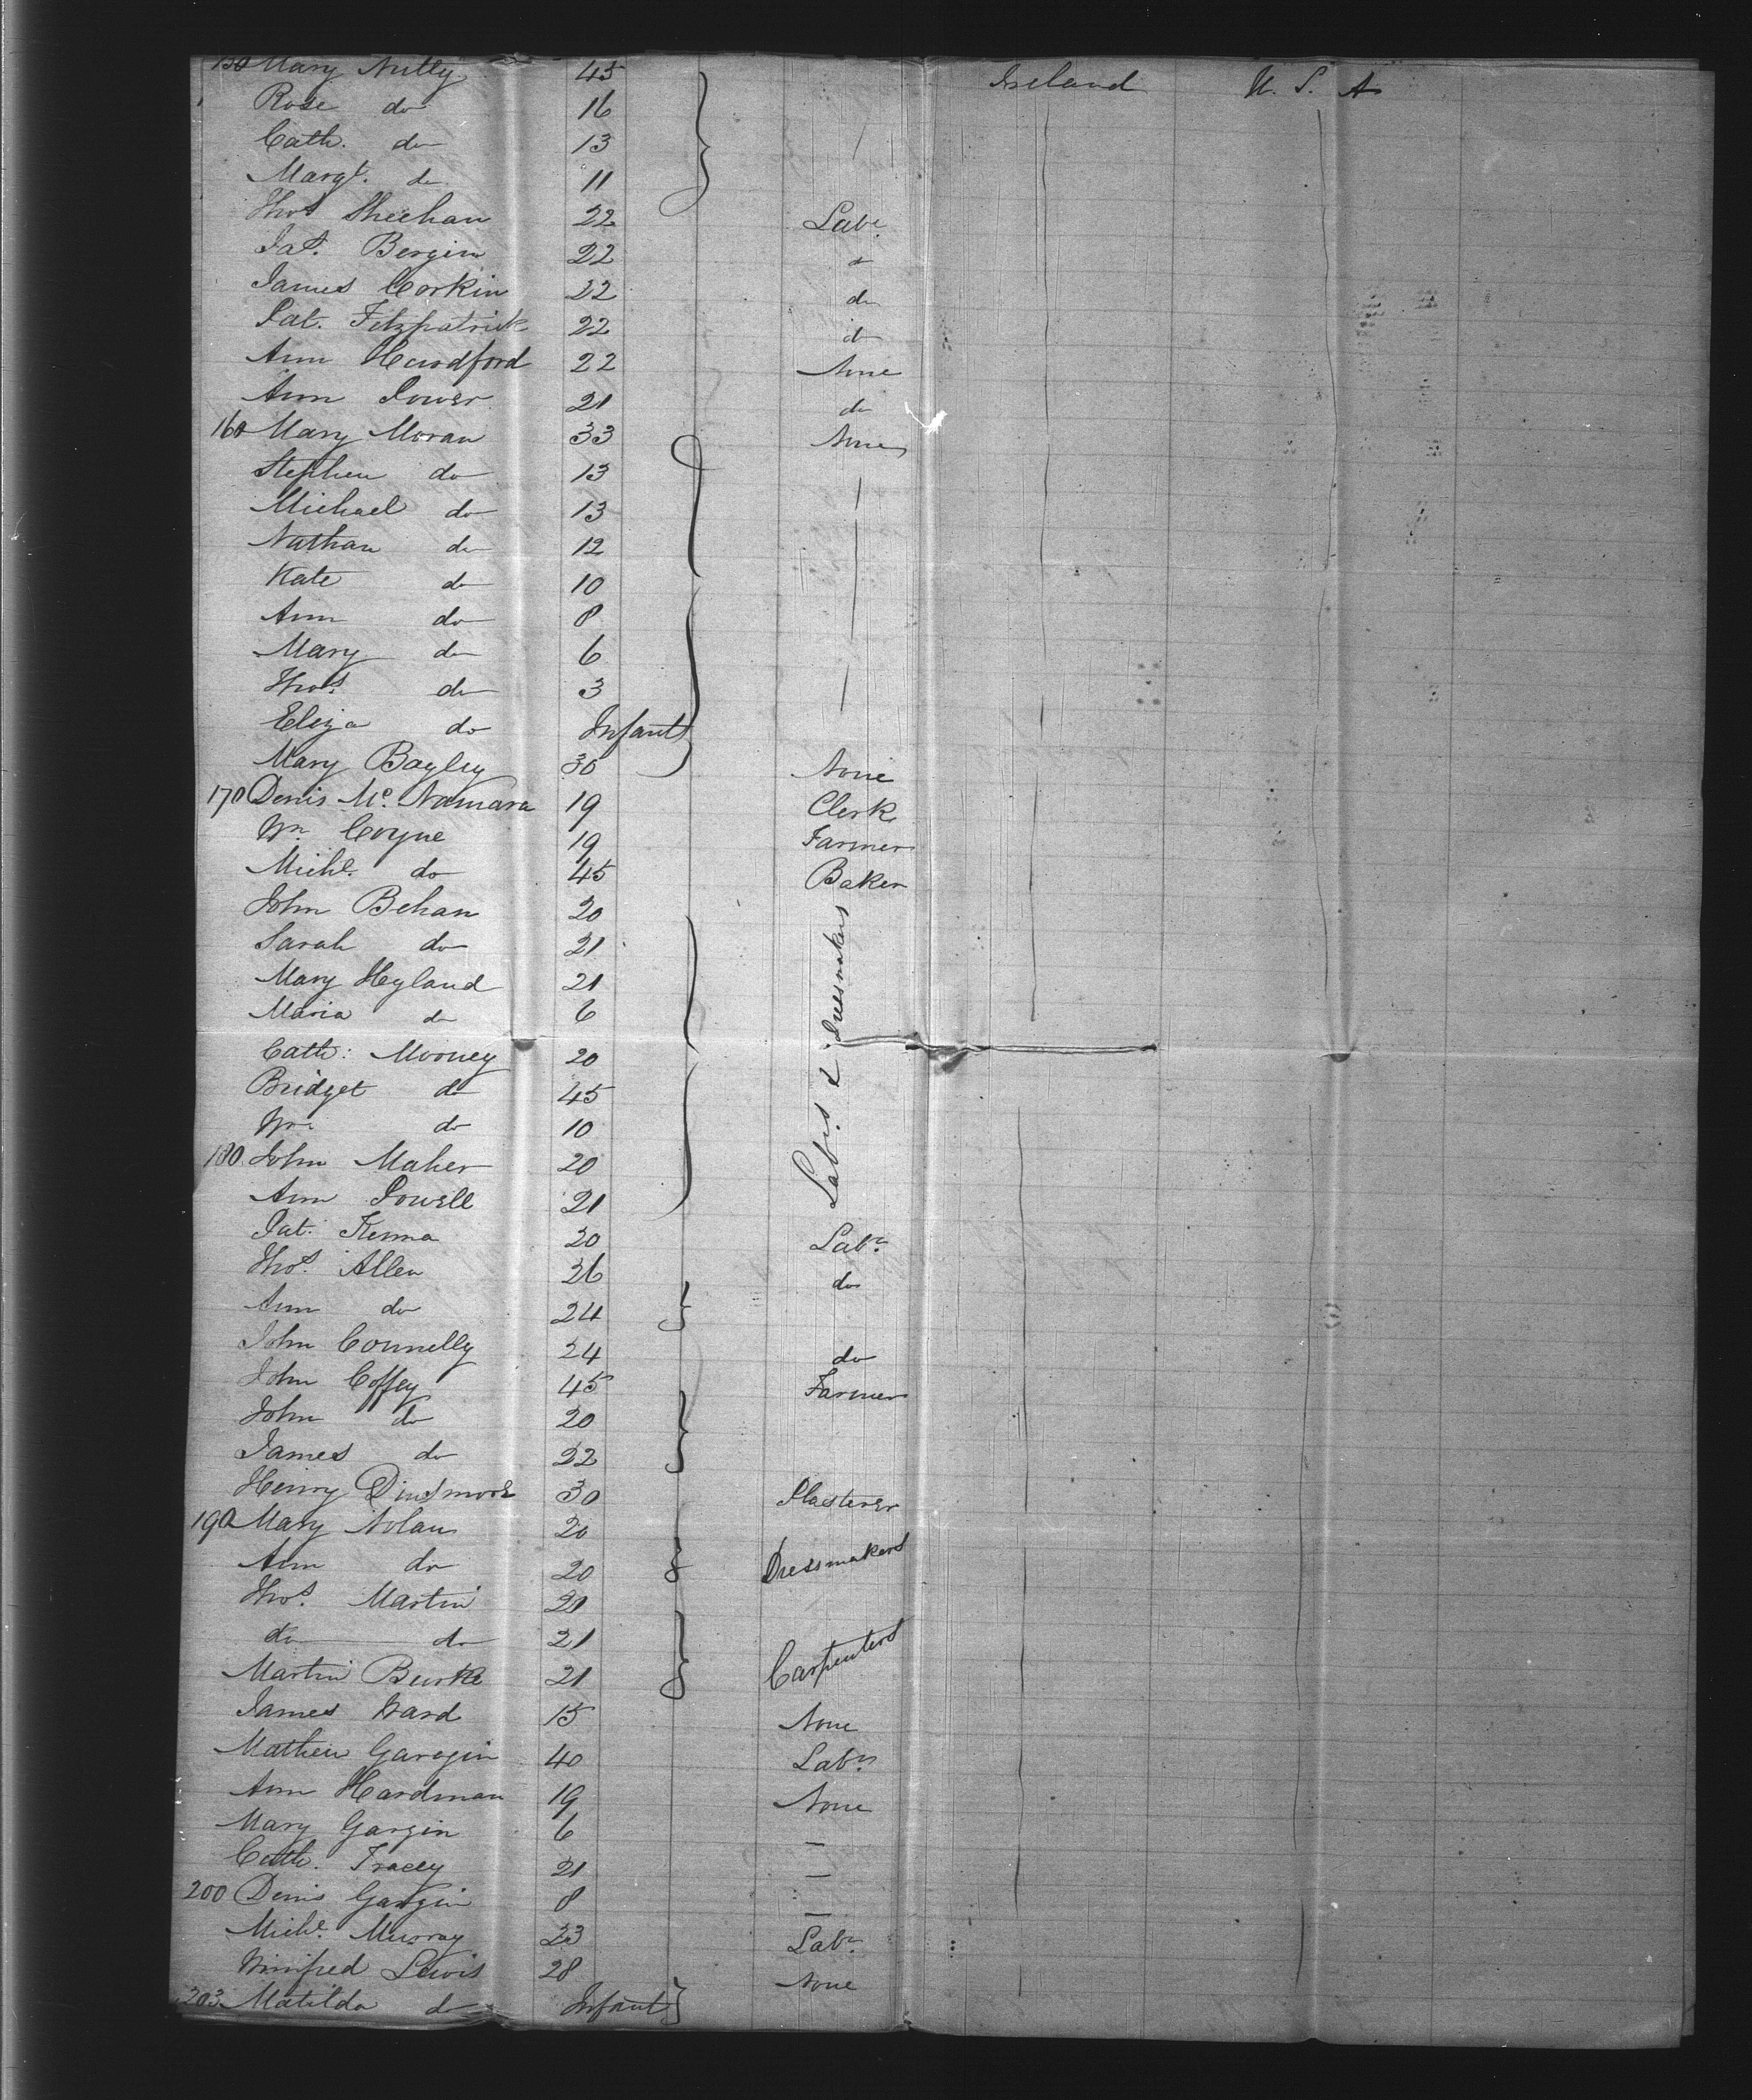 150 Mary Nulty 45 Ireland U. S. A
Rose do 16
Cath. do 13
Margt. do 11
Thos Sheehan 22 Labr.
Pat. Bergin 22 do
James Corkin 22 do
Pat. Fitzpatrick 22 do
Ann Handford 22 None
Ann Power 21 do
160 Mary Moran 33 None
Stephen do 13
Michael do 13
Nathan do 12
Kate do 10
Ann do 8
Mary do 6
Thos. do 3
Eliza do Infant
Mary Bagley 30 None
170 Denis Mc. Namara 19 Clerk
Wm. Coyne 19 Farmer
Michl. do 45 Baker
John Behan 20 Labrs & Dressmakers
Sarah do 21
Mary Hyland 21
Maria do 6
Cath: Mooney 20
Bridget do 45
Wm. do 10
180 John Maher 20
Ann Powell 21
Pat. Kenna 20 Labr.
Thos. Allen 26 do
Ann do 24
John Connelly 24 do
John Coffey 45 Farmer
John do 20
James do 22
Henry Dinsmore 30 Plasterer
190 Mary Nolan 20 Dressmakers
Ann do 20
Thos. Martin 21 Carpenters
do do 21
Martin Burke 21
James Ward 15 None
Mathew Garagin 40 Labr.
Ann Hardman 19 None
Mary Gargin 6 —
Cath. Tracey 21 —
200 Denis Gargin 8 —
Michl. Murray 23 Labr.
Winifred Lewis 28 None
203 Matilda do Infant